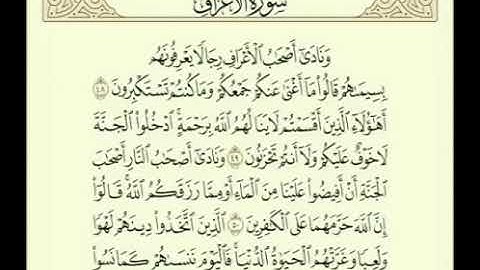 سورة الأعراف
وَنَادَىٰٓ أَصْحَٰبُ ٱلْأَعْرَافِ رِجَالًا يَعْرِفُونَهُم
بِسِيمَىٰهُمْ قَالُوا۟ مَآ أَغْنَىٰ عَنكُمْ جَمْعُكُمْ وَمَا كُنتُمْ تَسْتَكْبِرُونَ ٤٨
أَهَٰٓؤُلَآءِ ٱلَّذِينَ أَقْسَمْتُمْ لَا يَنَالُهُمُ ٱللَّهُ بِرَحْمَةٍ ۚ ٱدْخُلُوا۟ ٱلْجَنَّةَ
لَا خَوْفٌ عَلَيْكُمْ وَلَآ أَنتُمْ تَحْزَنُونَ ٤٩ وَنَادَىٰٓ أَصْحَٰبُ ٱلنَّارِ أَصْحَٰبَ
ٱلْجَنَّةِ أَنْ أَفِيضُوا۟ عَلَيْنَا مِنَ ٱلْمَآءِ أَوْ مِمَّا رَزَقَكُمُ ٱللَّهُ ۚ قَالُوٓا۟
إِنَّ ٱللَّهَ حَرَّمَهُمَا عَلَى ٱلْكَٰفِرِينَ ٥٠ ٱلَّذِينَ ٱتَّخَذُوا۟ دِينَهُمْ لَهْوًا
وَلَعِبًا وَغَرَّتْهُمُ ٱلْحَيَوٰةُ ٱلدُّنْيَا ۚ فَٱلْيَوْمَ نَنسَىٰهُمْ كَمَا نَسُوا۟